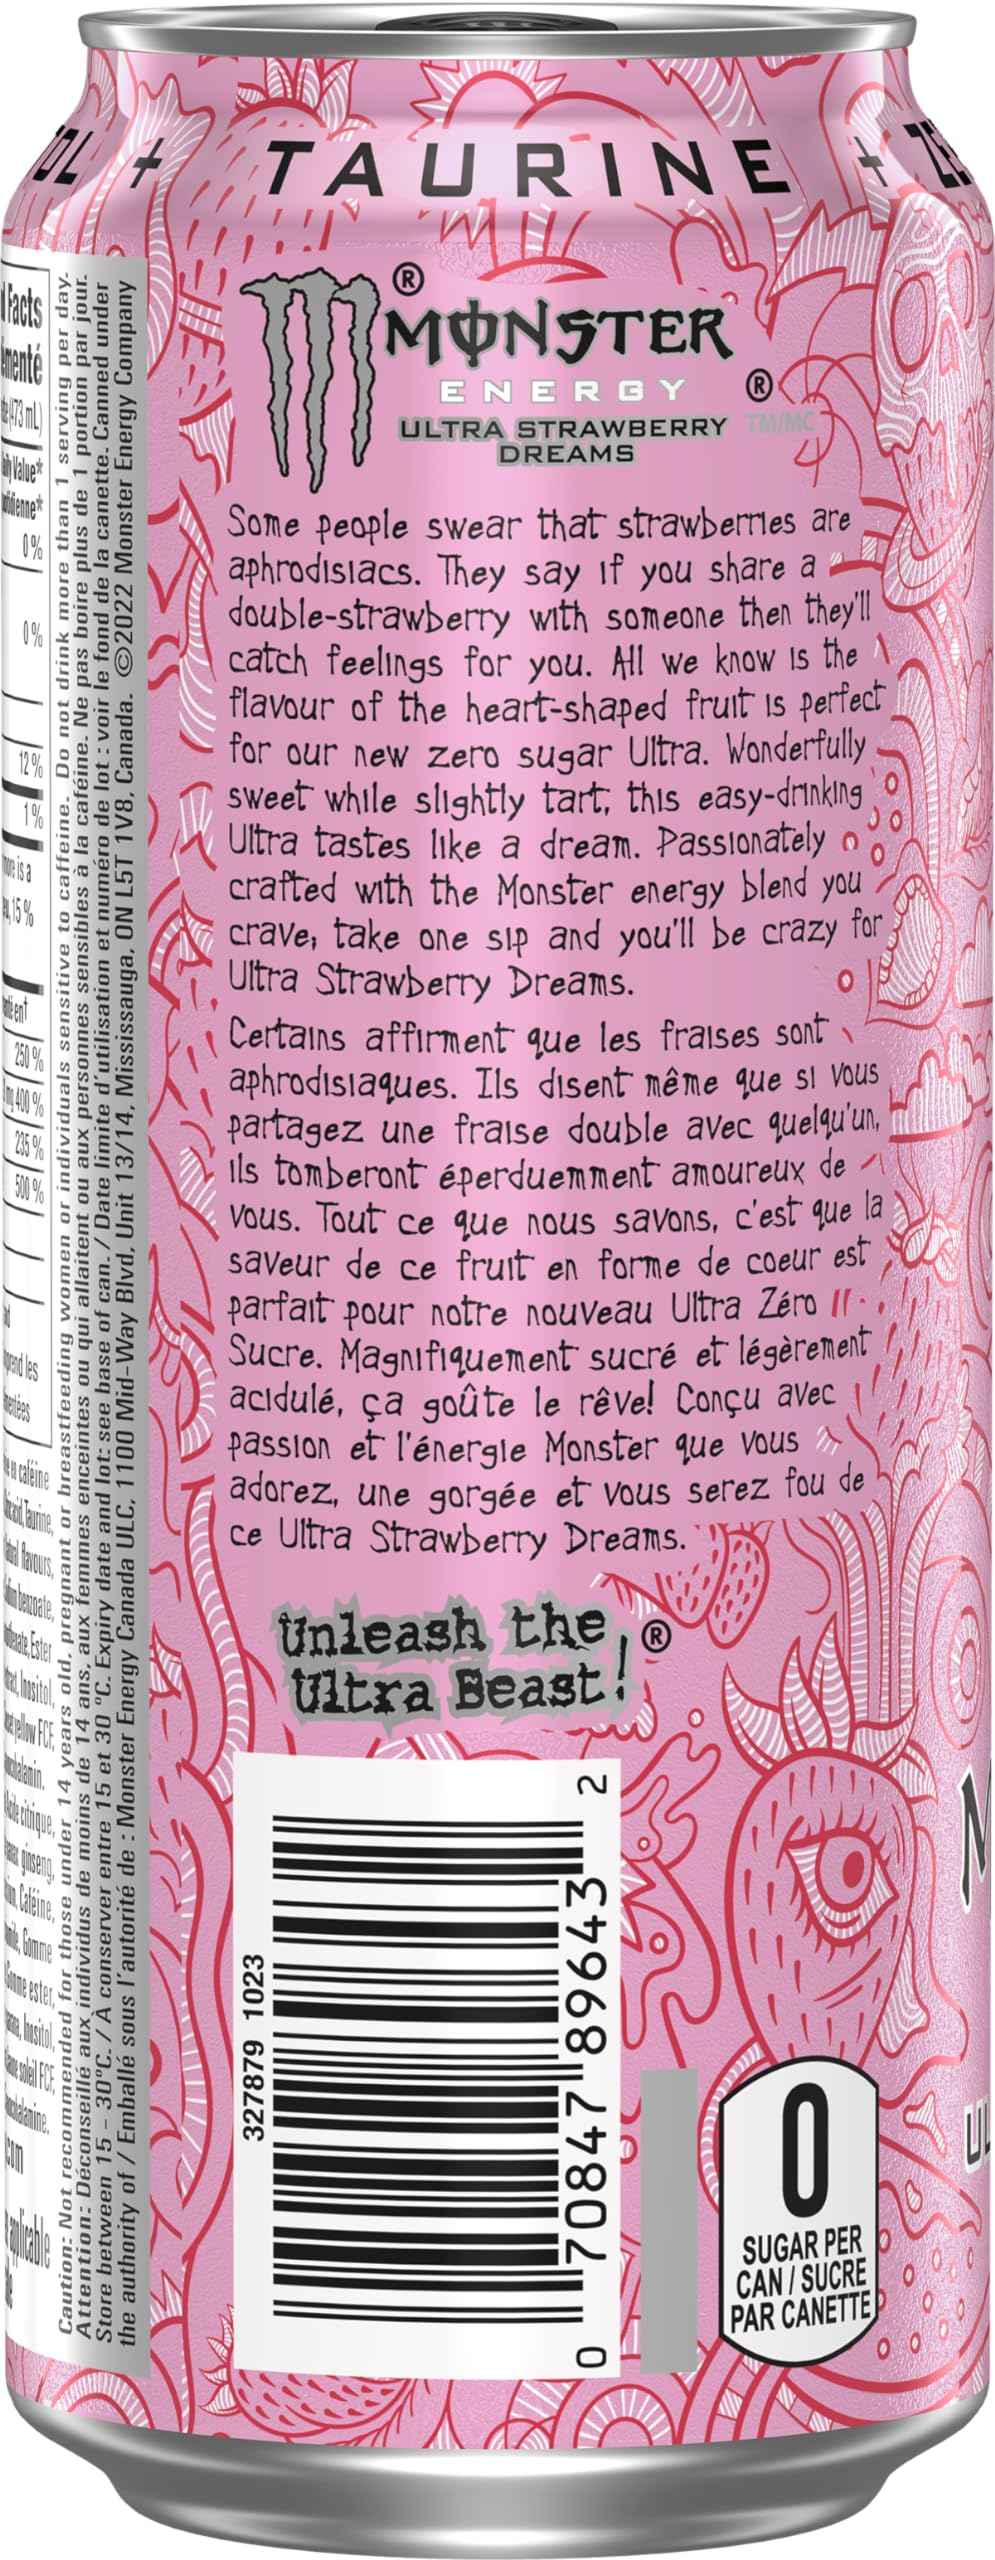 TAURINE +
MONSTER
ENERGY
ULTRA STRAWBERRY
DREAMS
®
®
TM/MC
Some people swear that strawberries are
aphrodisiacs. They say if you share a
double-strawberry with someone then they'll
catch feelings for you. All we know is the
flavour of the heart-shaped fruit is perfect
for our new zero sugar Ultra. Wonderfully
sweet while slightly tart, this easy-drinking
Ultra tastes like a dream. Passionately
crafted with the Monster energy blend you
crave, take one sip and you'll be crazy for
Ultra Strawberry Dreams.
Certains affirment que les fraises sont
aphrodisiaques. Ils disent même que si vous
partagez une fraise double avec quelqu'un,
ils tomberont éperduemment amoureux de
vous. Tout ce que nous savons, c'est que la
saveur de ce fruit en forme de coeur est
parfait pour notre nouveau Ultra Zéro
Sucre. Magnifiquement sucré et légèrement
acidulé, ça goûte le rêve! Conçu avec
passion et l'énergie Monster que vous
adorez, une gorgée et vous serez fou de
ce Ultra Strawberry Dreams.
Unleash the
Ultra Beast! ®
327879 1023
0 70847 89643 2
0
SUGAR PER
CAN / SUCRE
PAR CANETTE
Caution: Not recommended for those under 14 years old, pregnant or breastfeeding women or individuals sensitive to caffeine. Do not drink more than 1 serving per day.
Attention: Déconseillé aux individus de moins de 14 ans, aux femmes enceintes ou qui allaitent ou aux personnes sensibles à la caféine. Ne pas boire plus de 1 portion par jour.
Store between 15 - 30°C. / À conserver entre 15 et 30 °C. Expiry date and lot: see base of can. / Date limite d'utilisation et numéro de lot : voir le fond de la canette. Canned under
the authority of / Emballé sous l'autorité de : Monster Energy Canada ULC, 1100 Mid-Way Blvd, Unit 13/14, Mississauga, ON L5T 1V8, Canada. ©2022 Monster Energy Company
Facts
(473 mL)
Value*
0 %
0 %
12 %
1 %
15 %
250 %
400 %
235 %
500 %